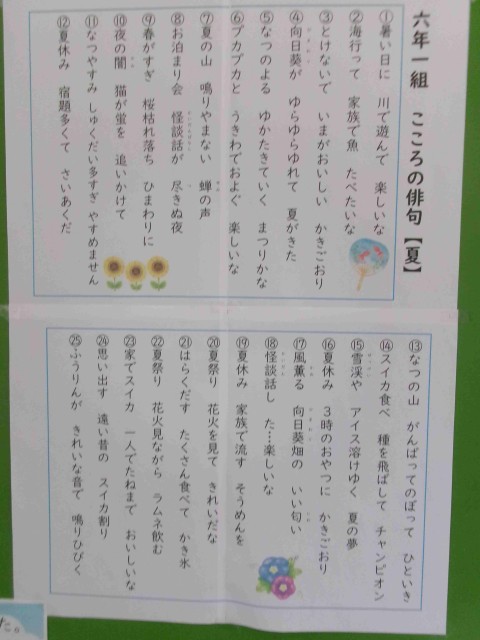 六年一組 こころの俳句【夏】
①暑い日に 川で遊んで 楽しいな
②海行って 家族で魚 たべたいな
③とけないで いまがおいしい かきごおり
④向日葵が ゆらゆらゆれて 夏がきた
⑤なつのよる ゆかたきていく まつりかな
⑥プカプカと うきわでおよぐ 楽しいな
⑦夏の山 鳴りやまない 蝉の声
⑧お泊まり会 怪談話が 尽きぬ夜
⑨春がすぎ 桜枯れ落ち ひまわりに
⑩夜の闇 猫が蛍を 追いかけて
⑪なつやすみ しゅくだい多すぎ やすめません
⑫夏休み 宿題多くて さいあくだ
⑬なつの山 がんばってのぼって ひといき
⑭スイカ食べ 種を飛ばして チャンピオン
⑮雪渓や アイス溶けゆく 夏の夢
⑯夏休み 3時のおやつに かきごおり
⑰風薫る 向日葵畑の いい匂い
⑱怪談話し た…楽しいな
⑲夏休み 家族で流す そうめんを
⑳夏祭り 花火を見て きれいだな
㉑はらくだす たくさん食べて かき氷
㉒夏祭り 花火見ながら ラムネ飲む
㉓家でスイカ 一人でたねまで おいしいな
㉔思い出す 遠い昔の スイカ割り
㉕ふうりんが きれいな音で 鳴りひびく
た。